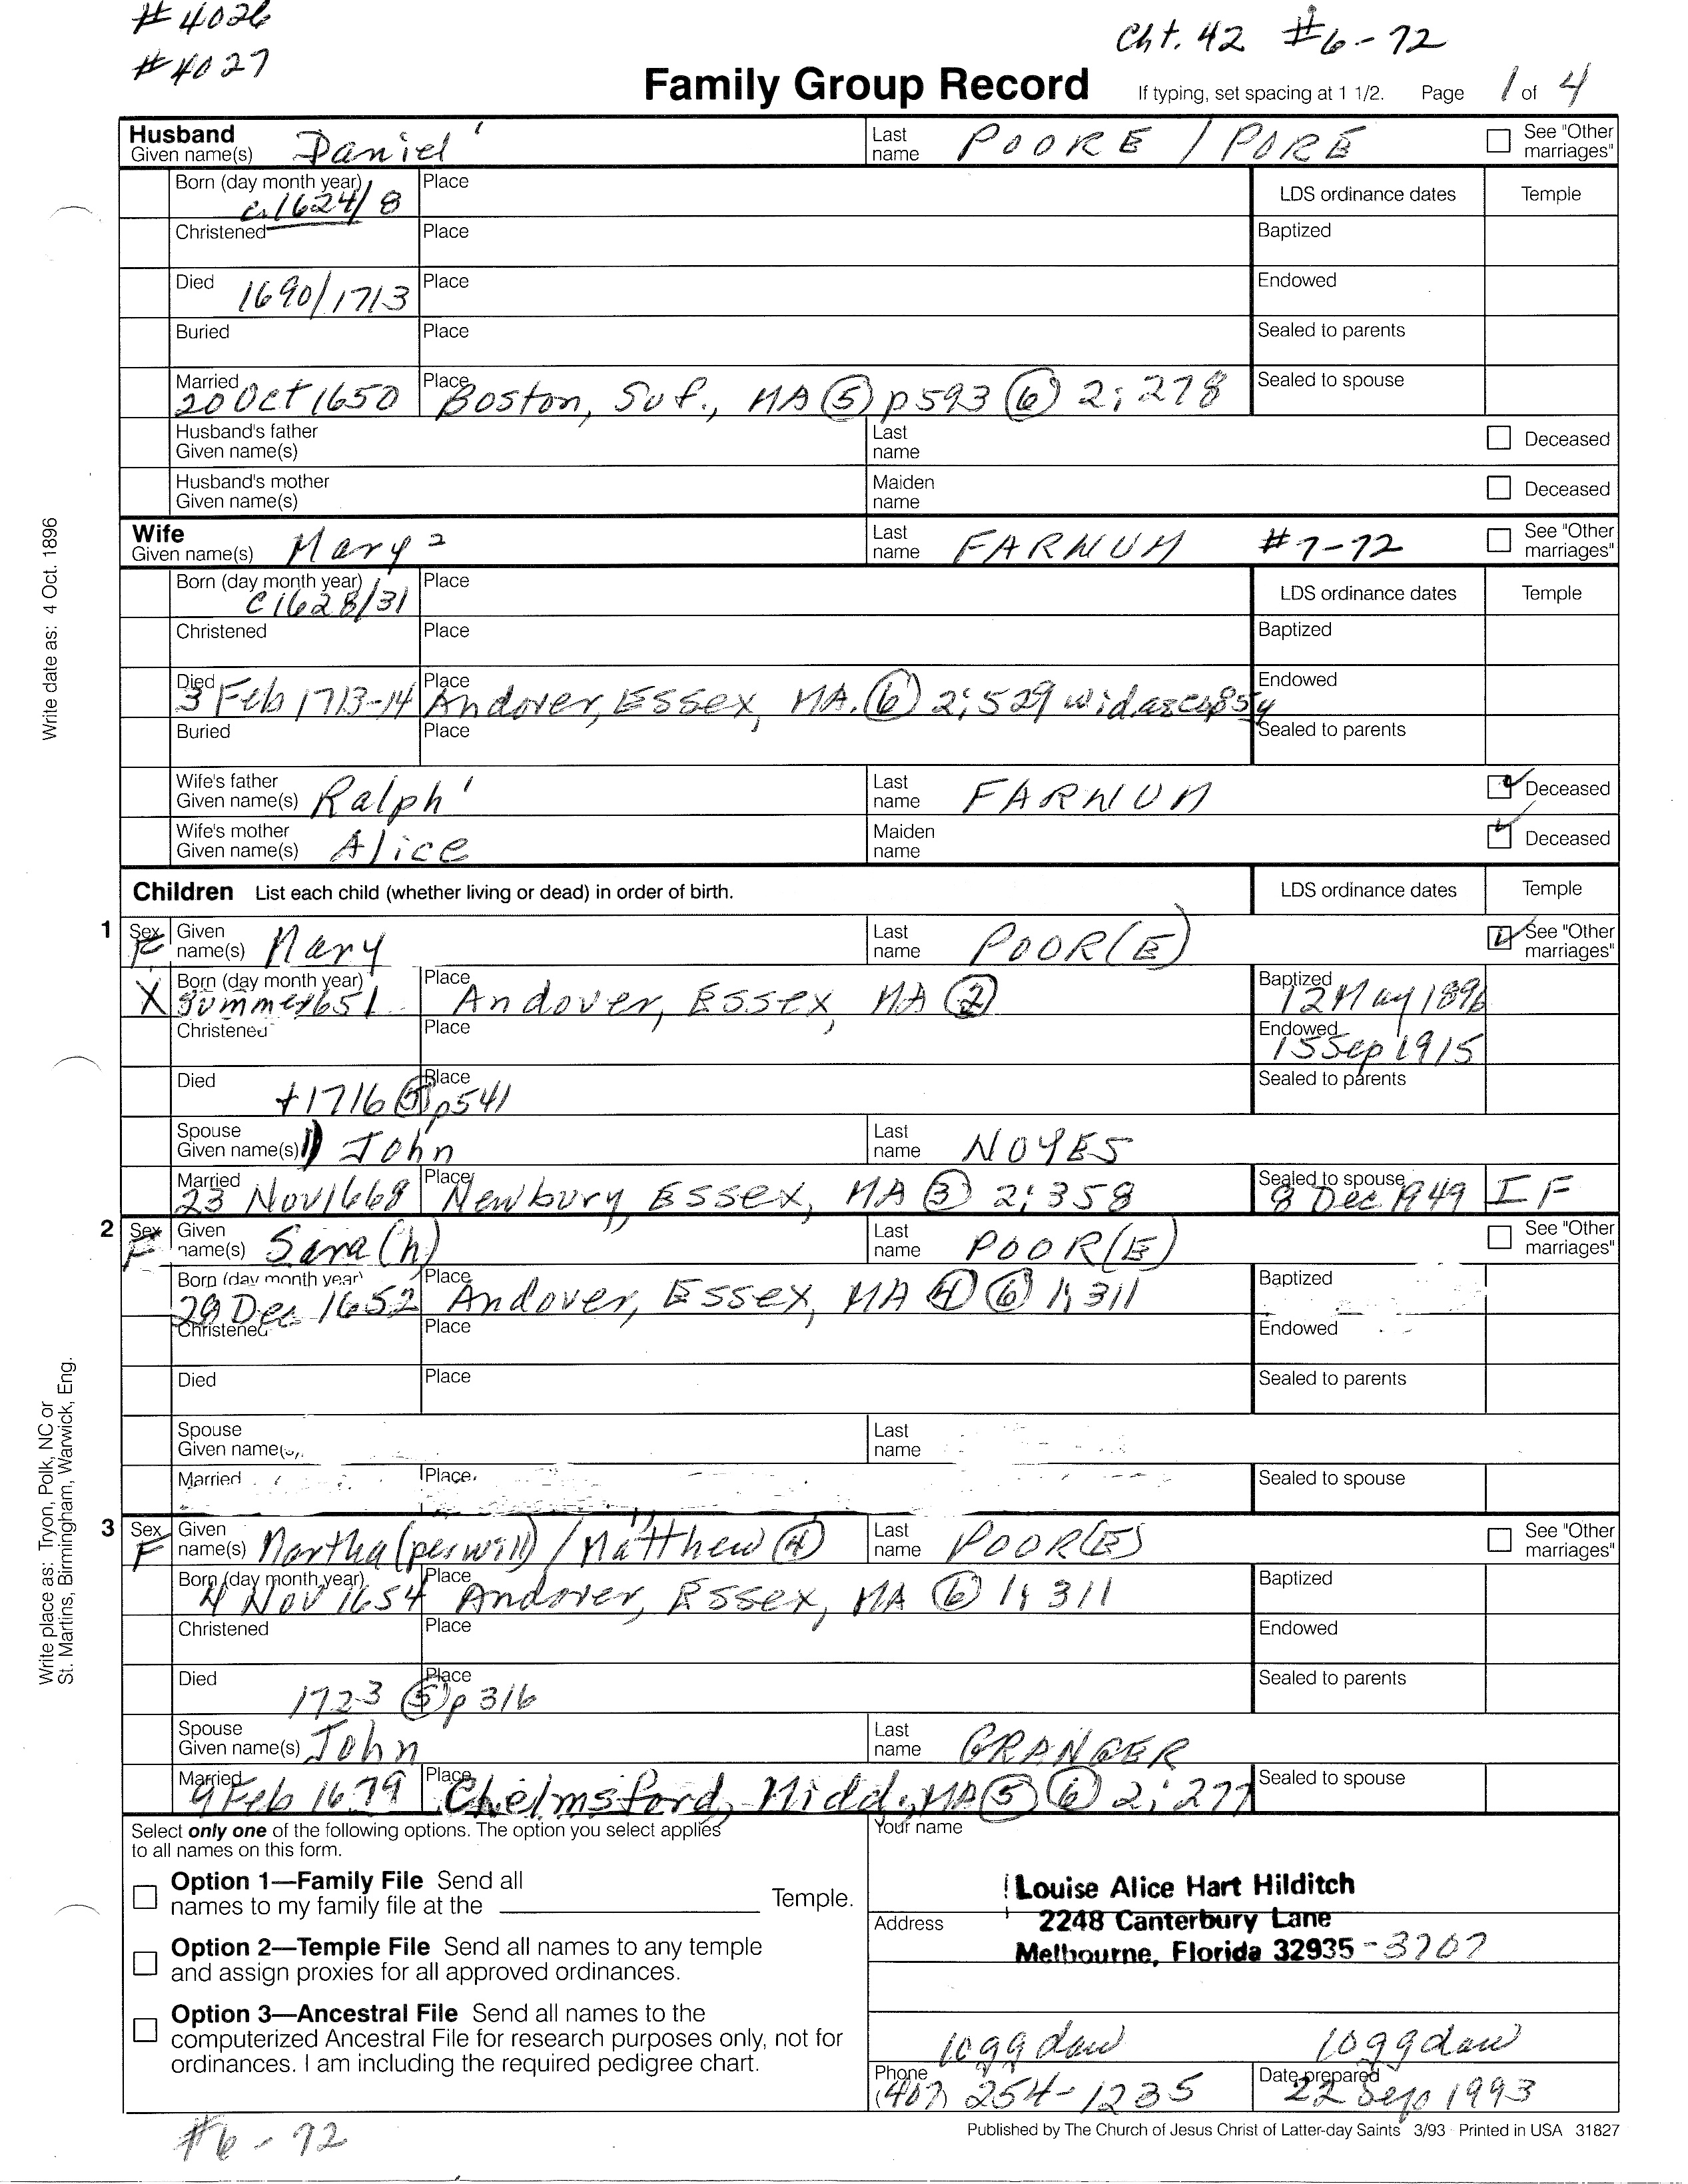 #4026
#4027
Cht. 42 #6-72
Family Group Record If typing, set spacing at 1 1/2. Page 1 of 4
Husband
Given name(s) Daniel 1 Last name POORE / PORE See "Other marriages"
Born (day month year) c1624/8 Place LDS ordinance dates Temple
Christened Place Baptized
Died 1690/1713 Place Endowed
Buried Place Sealed to parents
Married 20 Oct 1650 Place Boston, Suf., MA (5) p593 (6) 2; 278 Sealed to spouse
Husband's father Given name(s) Last name Deceased
Husband's mother Given name(s) Maiden name Deceased
Wife
Given name(s) Mary 2 Last name FARNUM #7-72 See "Other marriages"
Born (day month year) c1628/31 Place LDS ordinance dates Temple
Christened Place Baptized
Died 3 Feb 1713-14 Place Andover, Essex, MA. (6) 2; 529 wid Endowed
Buried Place Sealed to parents
Wife's father Given name(s) Ralph 1 Last name FARNUM Deceased
Wife's mother Given name(s) Alice Maiden name Deceased
Children List each child (whether living or dead) in order of birth. LDS ordinance dates Temple
1 Sex F Given name(s) Mary Last name POOR(E) See "Other marriages"
X Born (day month year) Summer 1651 Place Andover, Essex, MA (2) Baptized 12 May 1896
Christened Place Endowed 15 Sep 1915
Died +1716 (5) p541 Place Sealed to parents
Spouse Given name(s) 1) John Last name NOYES
Married 23 Nov 1668 Place Newbury, Essex, MA (3) 2; 358 Sealed to spouse 8 Dec 1949 IF
2 Sex F Given name(s) Sara(h) Last name POOR(E) See "Other marriages"
Born (day month year) 29 Dec 1652 Place Andover, Essex, MA (4) (6) 1; 311 Baptized
Christened Place Endowed
Died Place Sealed to parents
Spouse Given name(s) Last name
Married Place Sealed to spouse
3 Sex F Given name(s) Martha (per will) / "Matthew" (4) Last name POOR(E) See "Other marriages"
Born (day month year) 4 Nov 1654 Place Andover, Essex, MA (6) 1; 311 Baptized
Christened Place Endowed
Died 1723 (5) p 316 Place Sealed to parents
Spouse Given name(s) John Last name GRANGER
Married 9 Feb 1679 Place Chelmsford, Midd., MA (5) (6) 2; 277 Sealed to spouse
Select only one of the following options. The option you select applies to all names on this form.
Option 1—Family File Send all names to my family file at the Temple.
Option 2—Temple File Send all names to any temple and assign proxies for all approved ordinances.
Option 3—Ancestral File Send all names to the computerized Ancestral File for research purposes only, not for ordinances. I am including the required pedigree chart.
Your name Louise Alice Hart Hilditch
Address 2248 Canterbury Lane
Melbourne, Florida 32935-3707
Phone (407) 254-1235 Date prepared 22 Sep 1993
#6-72
Published by The Church of Jesus Christ of Latter-day Saints 3/93 Printed in USA 31827
Write date as: 4 Oct. 1896
Write place as: Tryon, Polk, NC or
St. Martins, Birmingham, Warwick, Eng.